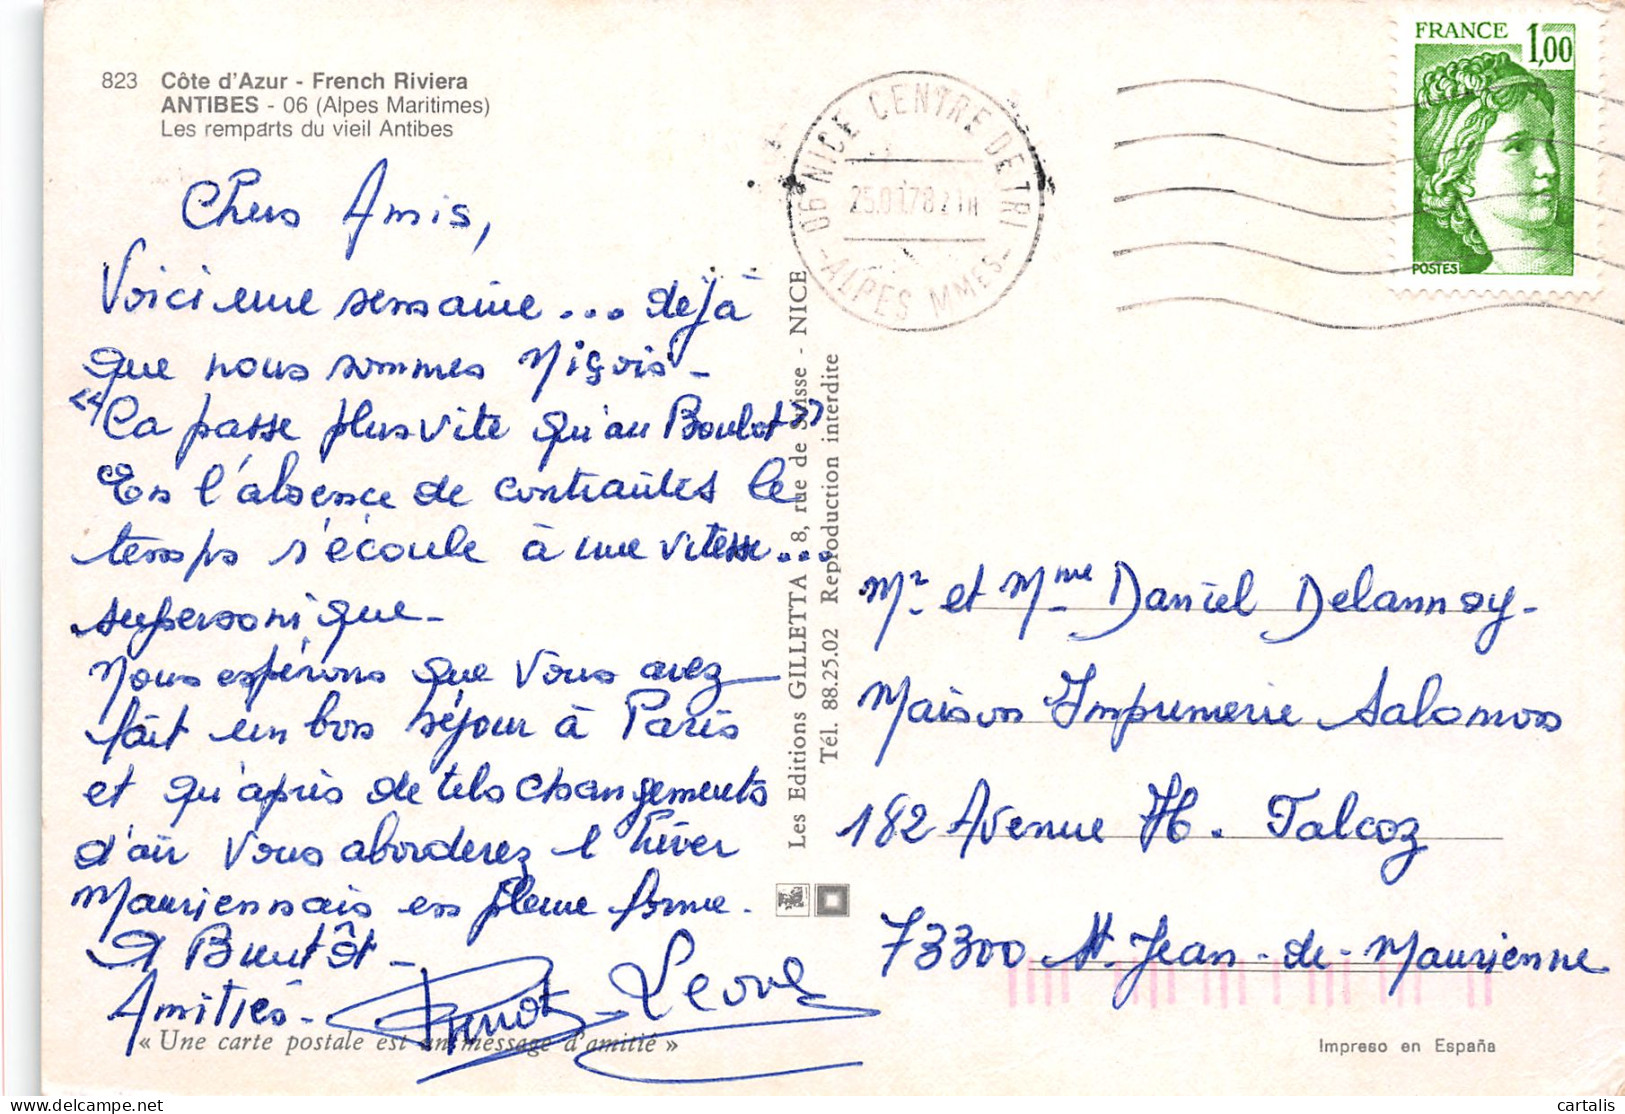 823 Côte d'Azur - French Riviera
ANTIBES - 06 (Alpes Maritimes)
Les remparts du vieil Antibes
Chers Amis,
Voici une semaine ... déjà
que nous sommes Niçois -
"Ca passe plus vite qu'au Boulot"
En l'absence de contraintes le
temps s'écoule à une vitesse...
supersonique -
Nous espérons que vous avez
fait un bon séjour à Paris
et qu'après de tels changements
d'air vous aborderez l'hiver
Mauriennais en pleine forme.
A Bientôt -
Amitiés -
« Une carte postale est un message d'amitié »
Les Editions GILLETTA 8, rue de Suisse - NICE
Tél. 88.25.02 Reproduction interdite
06 NICE CENTRE DE TRI
- ALPES MMES -
FRANCE 1,00
POSTES
Mr et Mme Daniel Delannoy -
Maison Imprimerie Salomon
182 Avenue H. Falcoz
73300 St. Jean-de-Maurienne
Impreso en España
cartalis